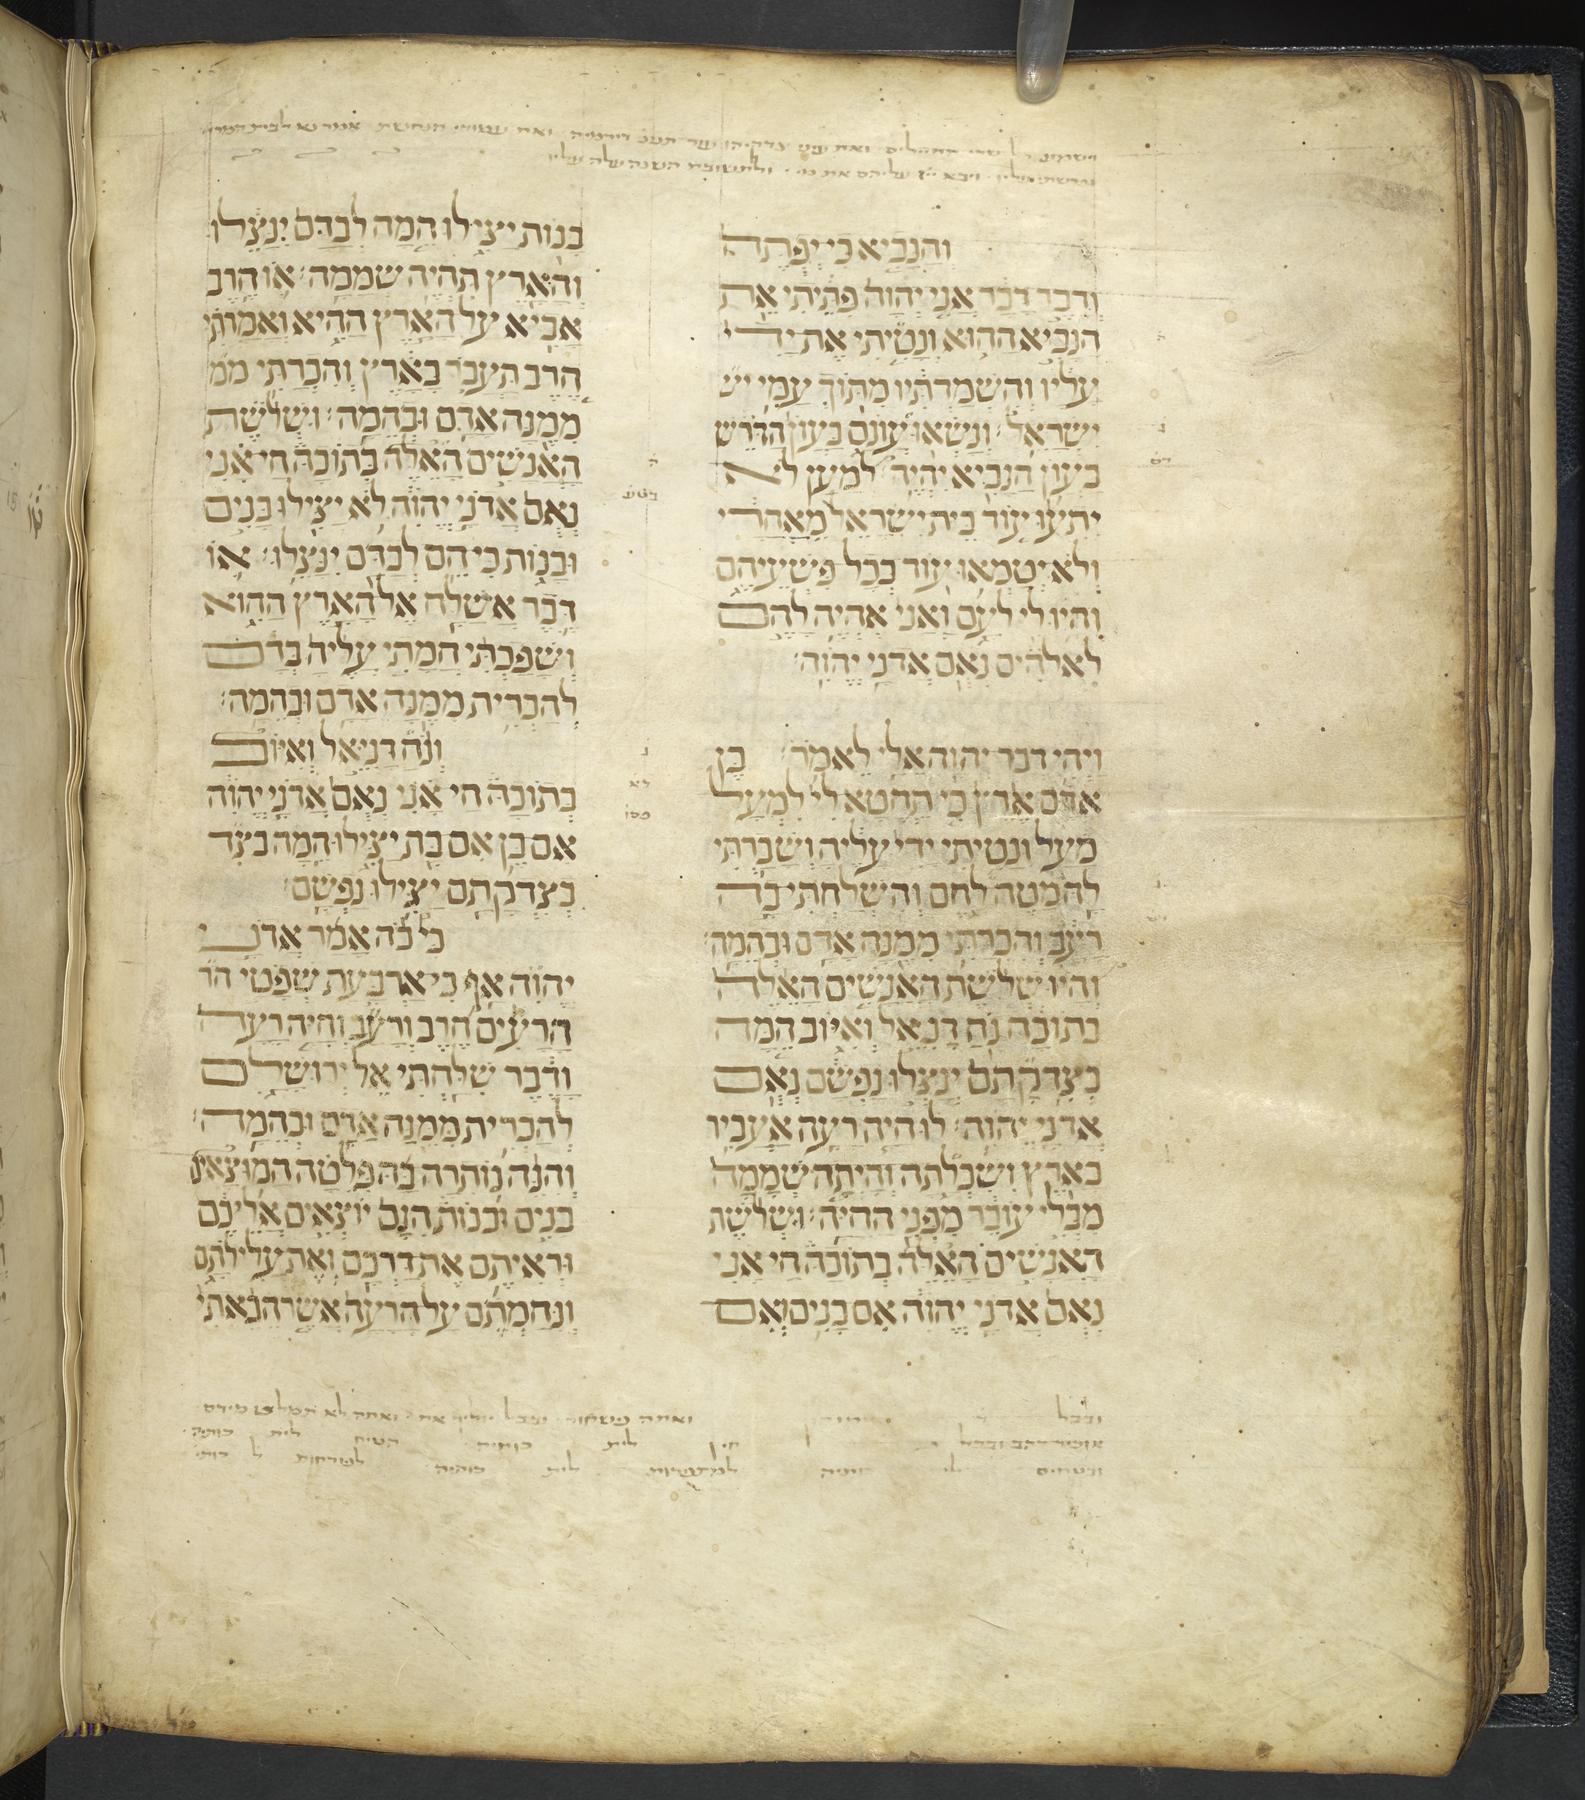 והנביא כי יפתה
ודבר דבר אני יהוה פתיתי את
הנביא ההוא ונטיתי את ידי
עליו והשמדתיו מתוך עמי יש
ישראל׃ ונשאו עונם כעון הדרש
כעון הנביא יהיה׃ למען לא
יתעו עוד בית ישראל מאחרי
ולא יטמאו עוד בכל פשעיהם
והיו לי לעם ואני אהיה להם
לאלהים נאם אדני יהוה׃
ויהי דבר יהוה אלי לאמר׃ בן
אדם ארץ כי תחטא לי למעל
מעל ונטיתי ידי עליה ושברתי
לה מטה לחם והשלחתי בה
רעב והכרתי ממנה אדם ובהמה׃
והיו שלשת האנשים האלה
בתוכה נח דניאל ואיוב המה
בצדקתם ינצלו נפשם נאם
אדני יהוה׃ לו חיה רעה אעביר
בארץ ושכלתה והיתה שממה
מבלי עובר מפני החיה׃ ושלשת
האנשים האלה בתוכה חי אני
נאם אדני יהוה אם בנים ואם
בנות יצילו המה לבדם ינצלו
והארץ תהיה שממה׃ או חרב
אביא על הארץ ההיא ואמרתי
חרב תעבר בארץ והכרתי ממ
ממנה אדם ובהמה׃ ושלשת
האנשים האלה בתוכה חי אני
נאם אדני יהוה לא יצילו בנים
ובנות כי הם לבדם ינצלו׃ או
דבר אשלח אל הארץ ההוא
ושפכתי חמתי עליה בדם
להכרית ממנה אדם ובהמה׃
ונח דניאל ואיוב
בתוכה חי אני נאם אדני יהוה
אם בן אם בת יצילו המה בצד
בצדקתם יצילו נפשם׃
כי כה אמר אדני
יהוה אף כי ארבעת שפטי הר
הרעים חרב ורעב וחיה רעה
ודבר שלחתי אל ירושלם
להכרית ממנה אדם ובהמה׃
והנה נותרה בה פלטה המוצאים
בנים ובנות הנם יוצאים אליכם
וראיתם את דרכם ואת עלילתם
ונחמתם על הרעה אשר הבאתי